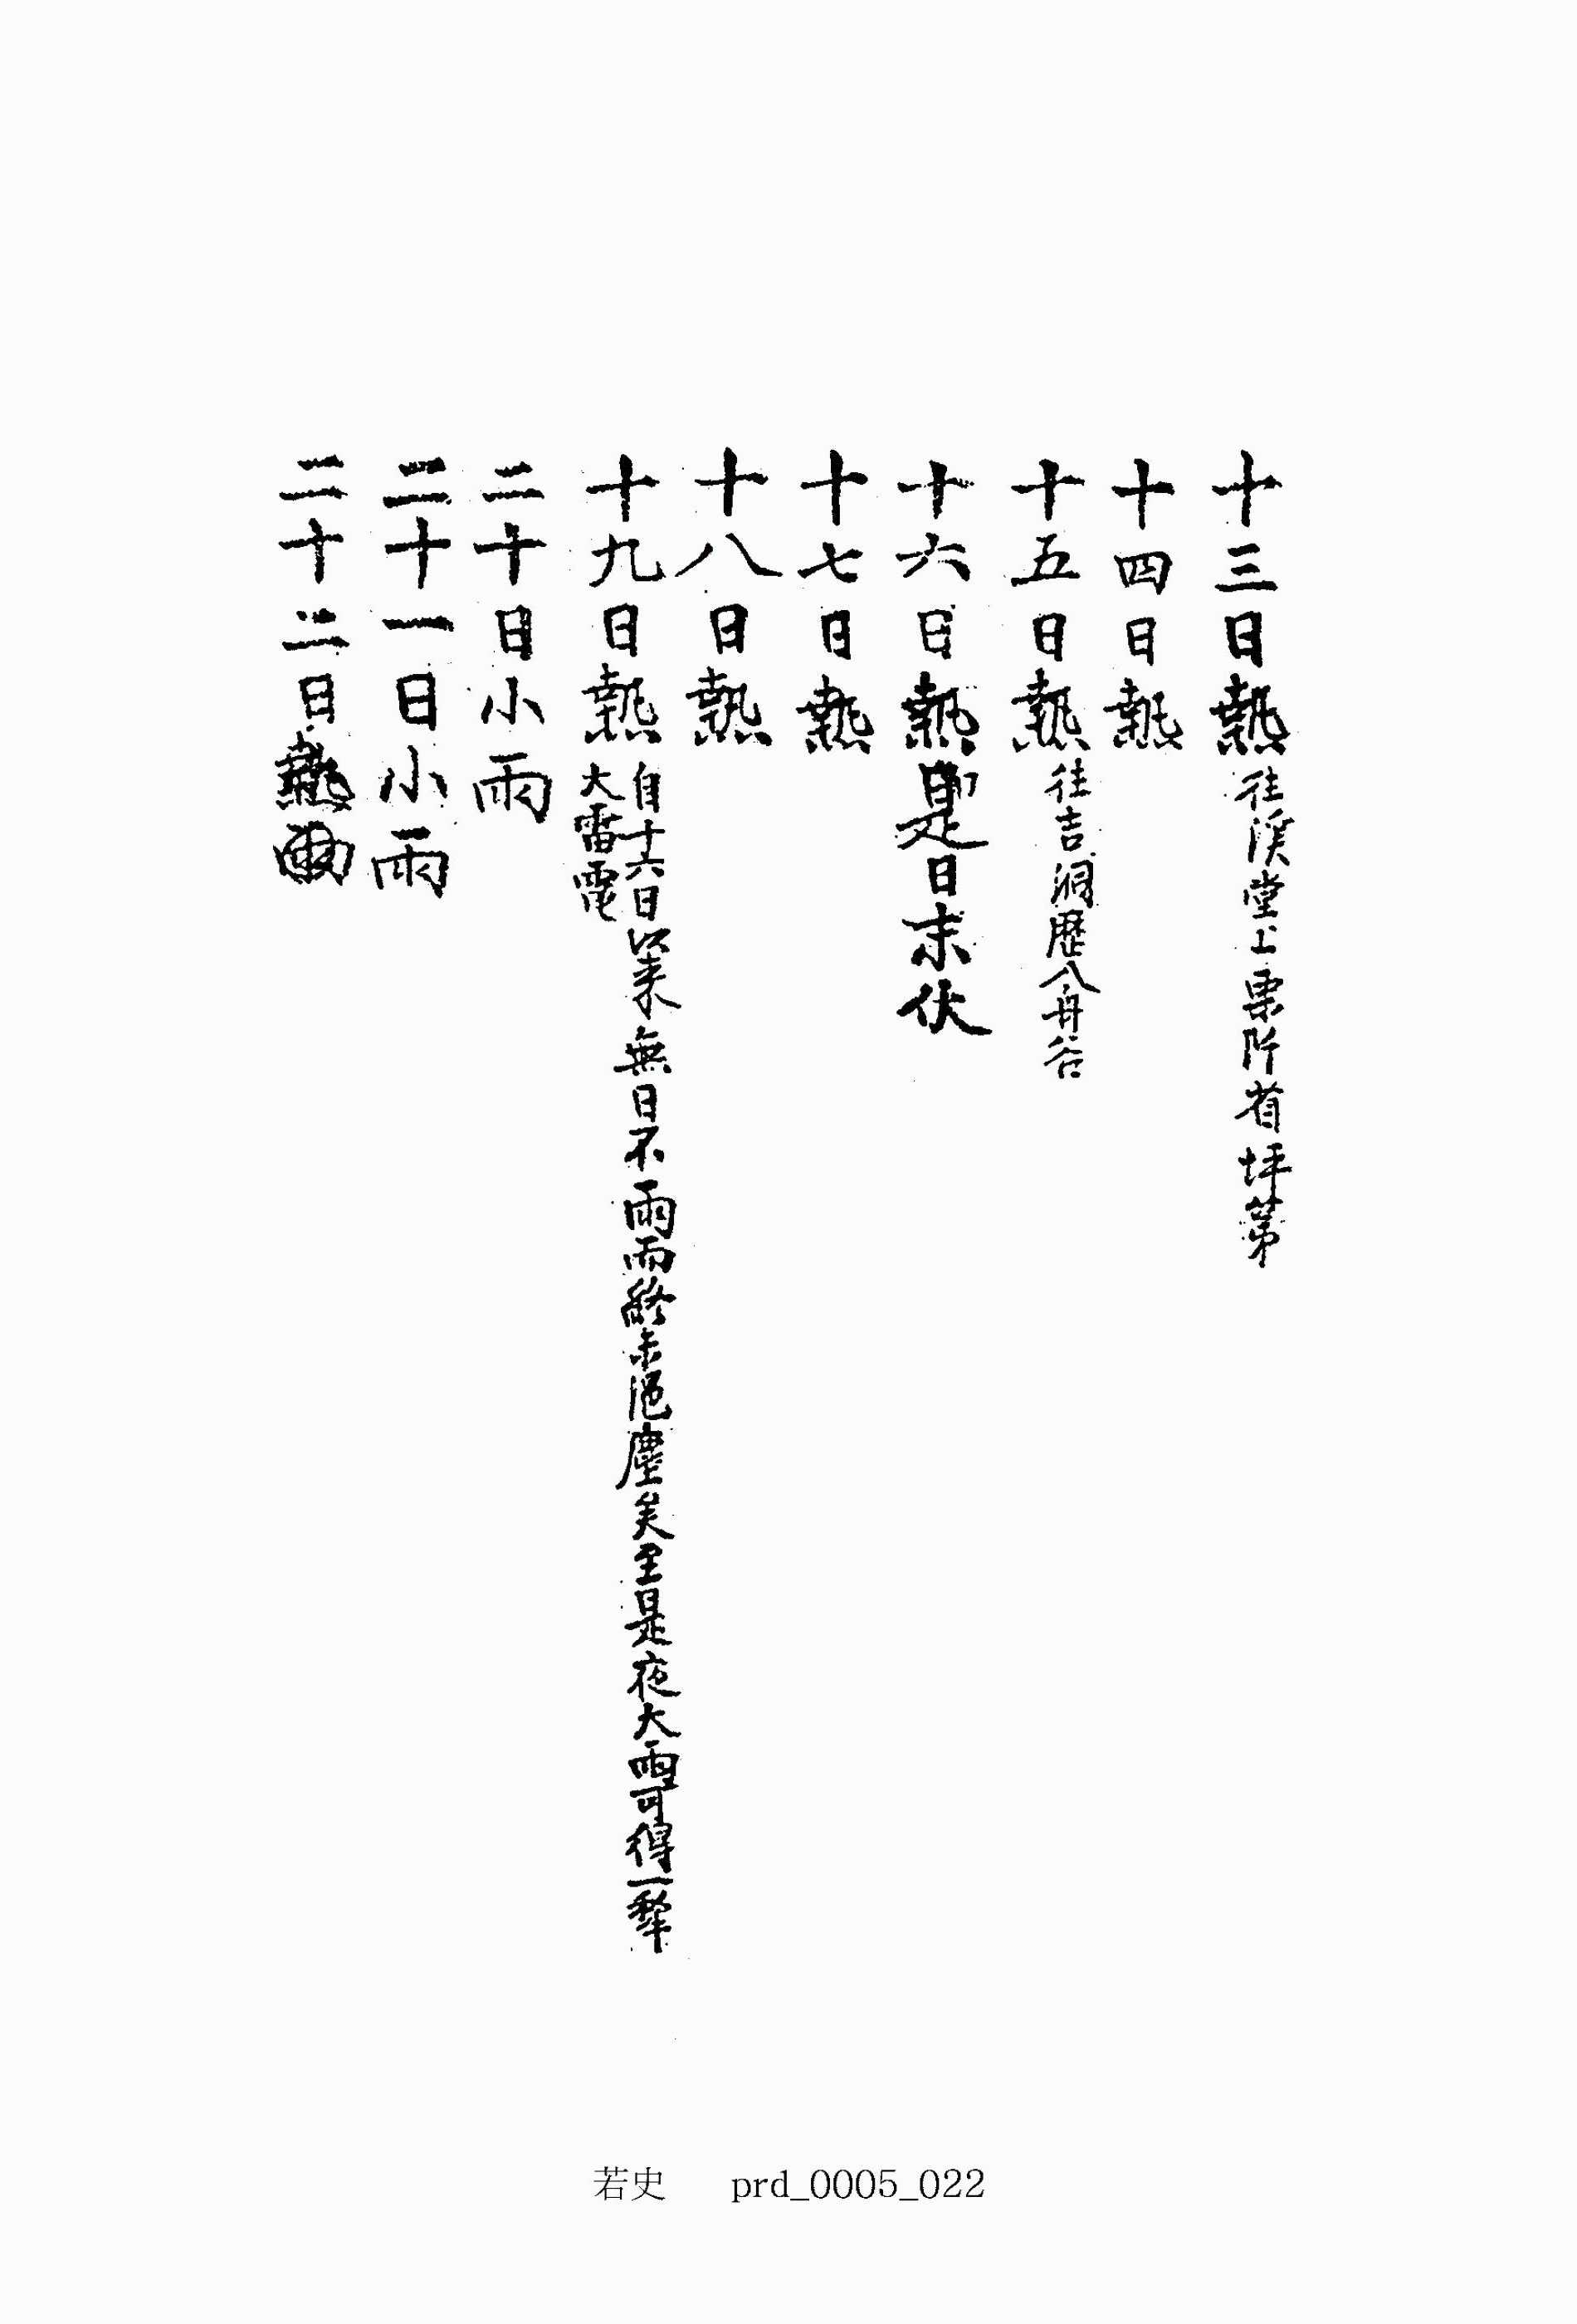 十三日熱 往溪堂上栗阡省坪第
十四日熱
十五日熱 往吉洞歷八舟谷
十六日熱 是日末伏
十七日熱
十八日熱
十九日熱 自十六日以來無日不雨而終未浥塵矣至是夜大雨可得一犂
大雷電
二十日小雨
二十一日小雨
二十二日
若史 prd_0005_022